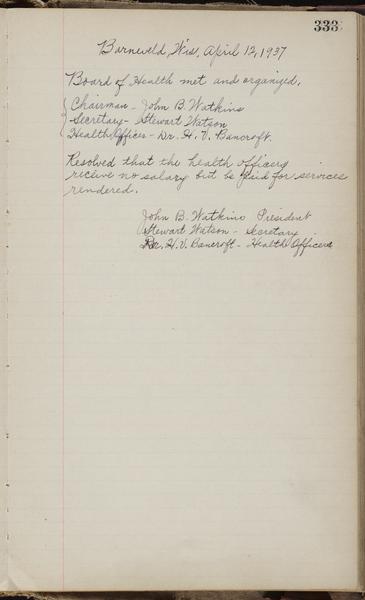 333
Barneveld, Wis, April 12, 1937
Board of Health met and organized.
Chairman - John B. Watkins
Secretary - Stewart Watson
Health Officer - Dr. H. V. Bancroft.
Resolved that the health officers
recieve no salary but be paid for services
rendered.
John B. Watkins President
Stewart Watson - Secretary
Dr. H. V. Bancroft - Health Officer